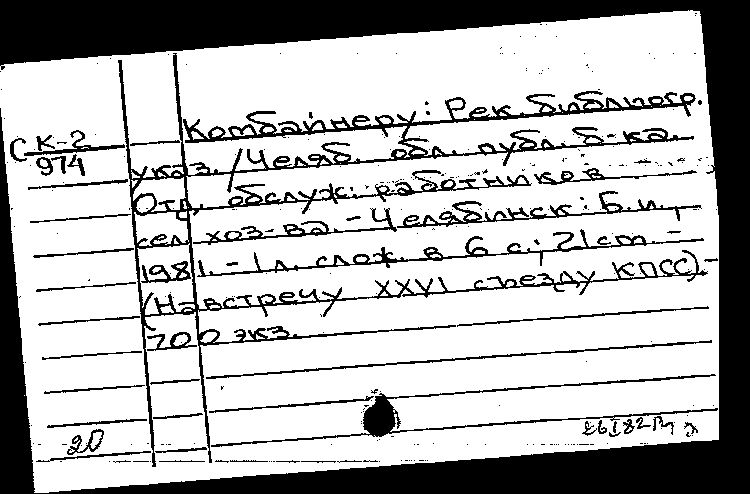 Комбайнеру: Рек. библиогр.
С К-2
974
указ. / Челяб. обл. публ. б-ка.
Отд. обслуж. работников
сел. хоз-ва. - Челябинск: Б. и.,
1981. - 1 л. слож. в 6 с.; 21 cm. -
(Навстречу XXVI съезду КПСС). -
700 экз.
20